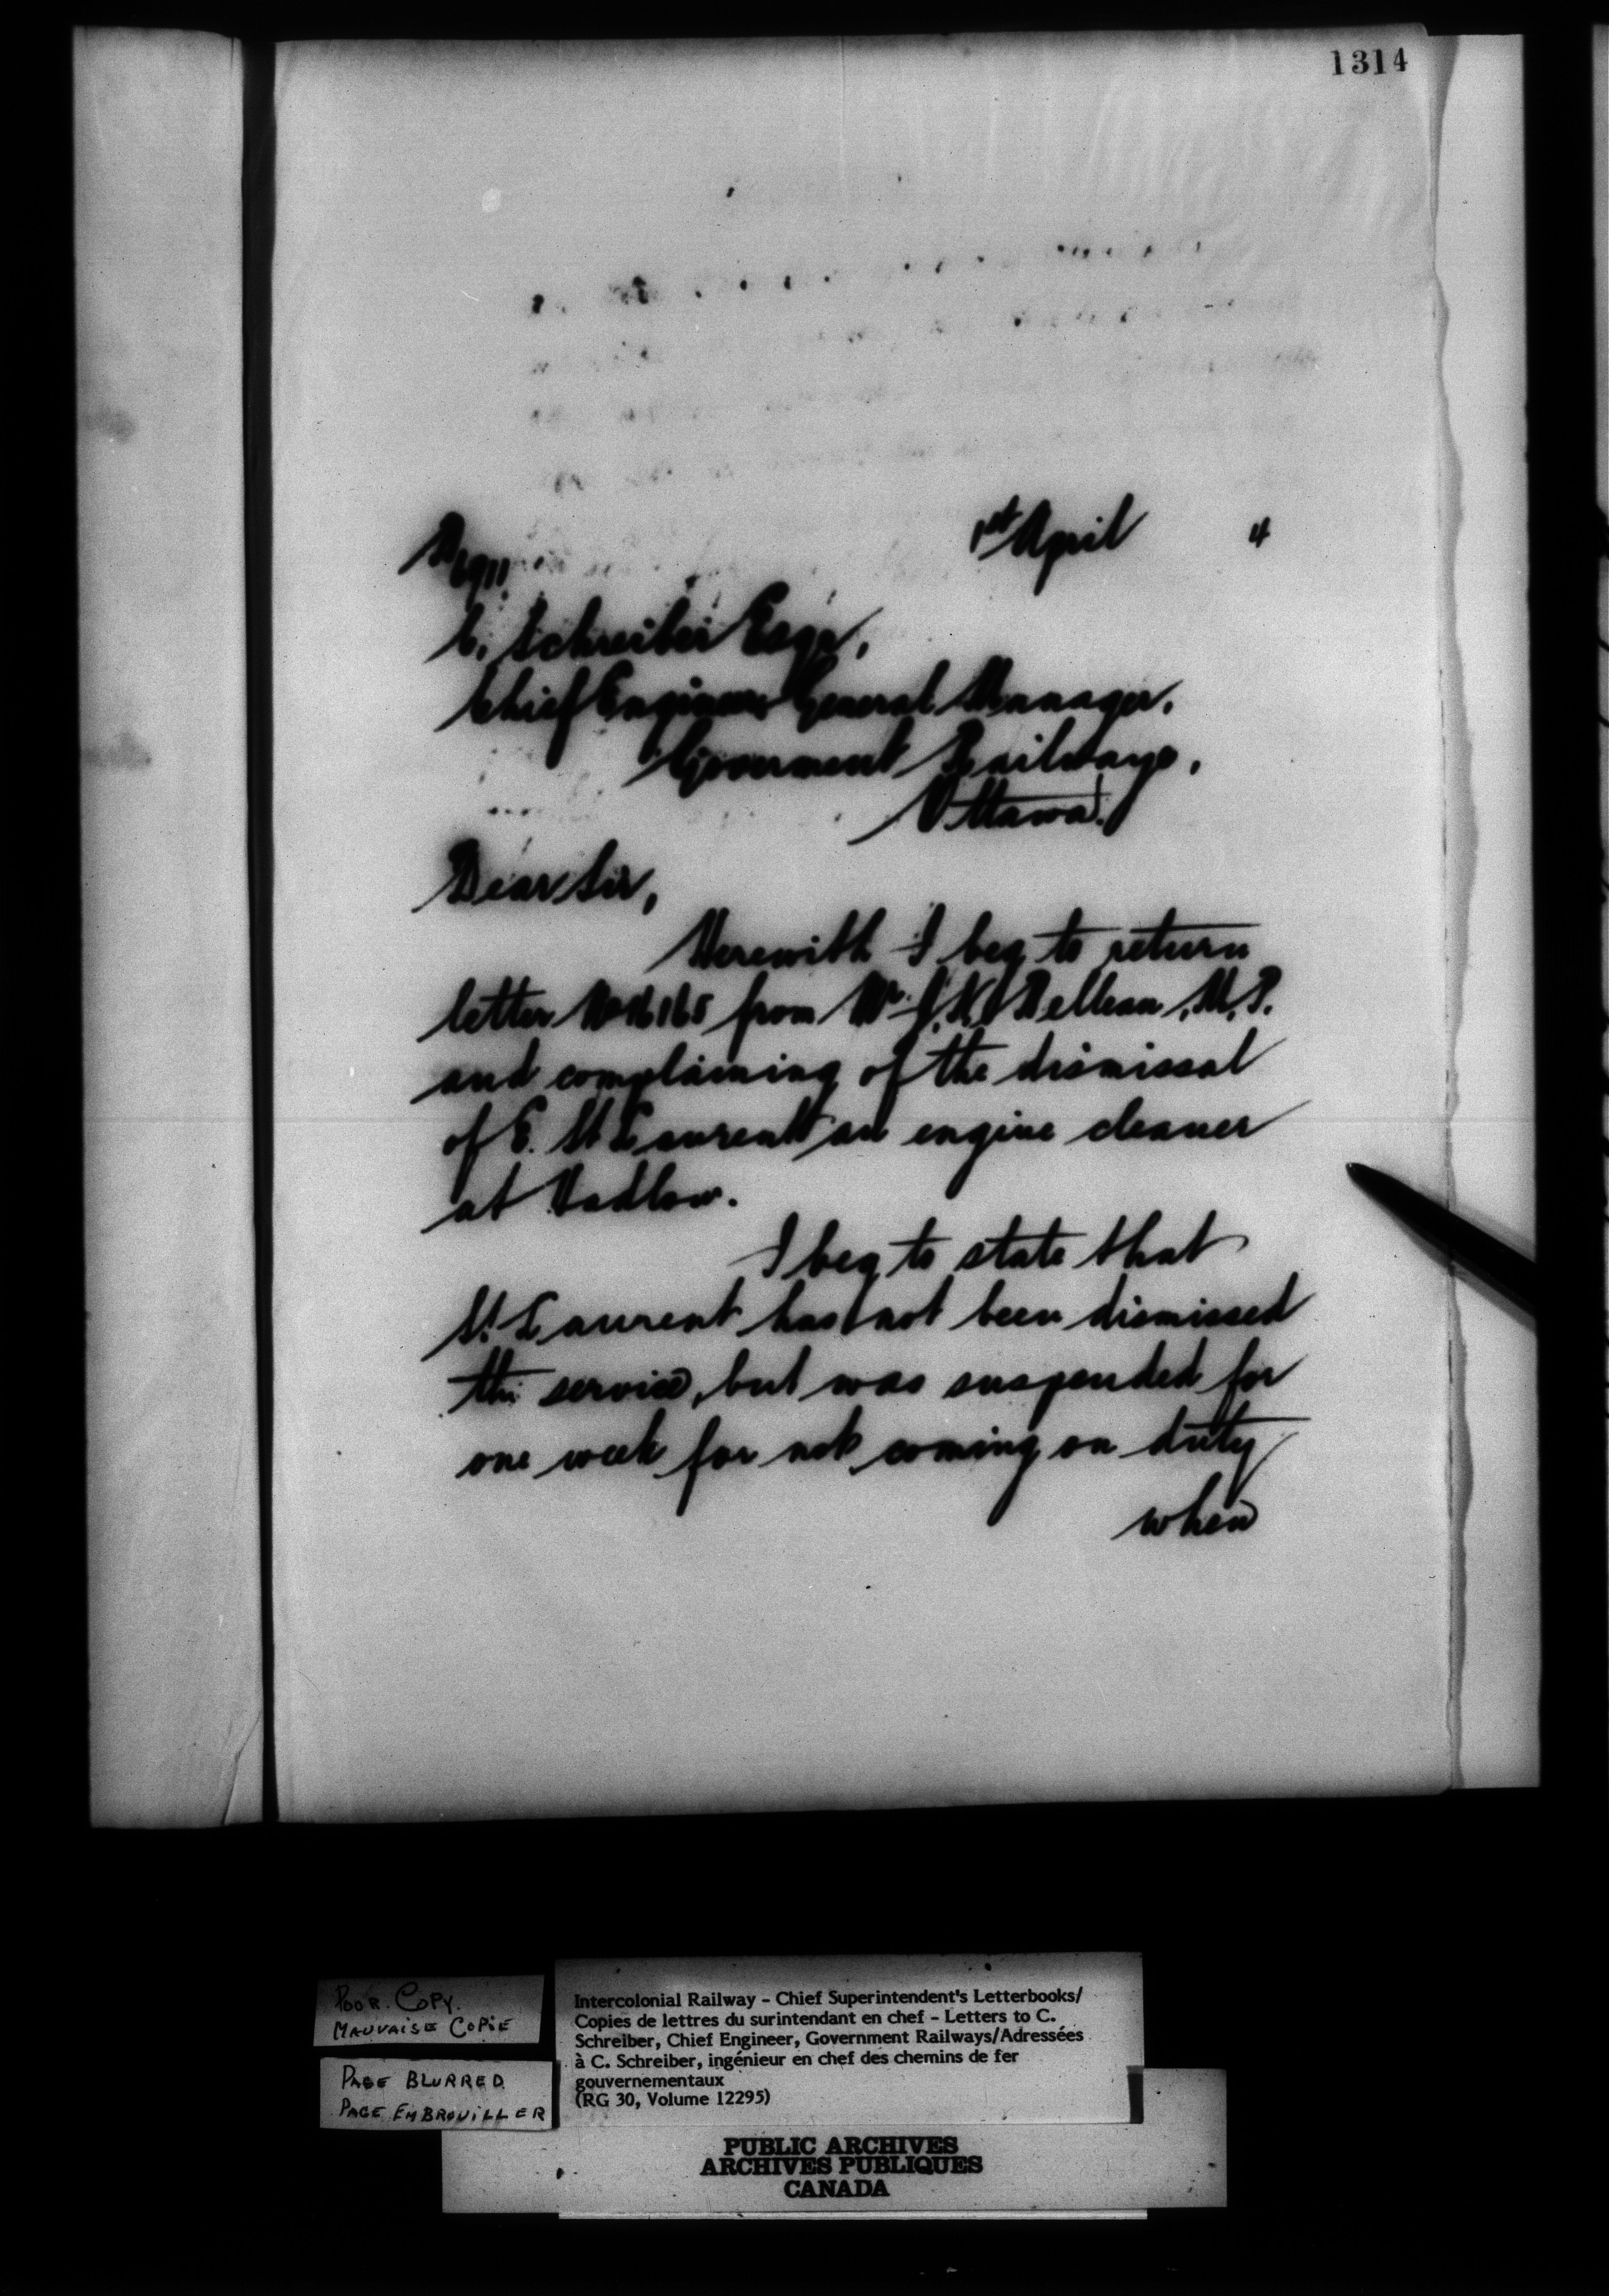 1314
1st April 4
C. Schreiber Esqr,
Chief Engineer General Manager,
Government Railways,
Ottawa.
Dear Sir,
Herewith I beg to return
letter from Mr. Belleau, M.P.
and complaining of the dismissal
of E. St Laurent an engine cleaner
at Hadlow.
I beg to state that
St Laurent has not been dismissed
the service, but was suspended for
one week for not coming on duty
when
POOR COPY.
MAUVAISE COPIE
PAGE BLURRED
PAGE EMBROUILLER
Intercolonial Railway – Chief Superintendent's Letterbooks/
Copies de lettres du surintendant en chef – Letters to C.
Schreiber, Chief Engineer, Government Railways/Adressées
à C. Schreiber, ingénieur en chef des chemins de fer
gouvernementaux
(RG 30, Volume 12295)
PUBLIC ARCHIVES
ARCHIVES PUBLIQUES
CANADA